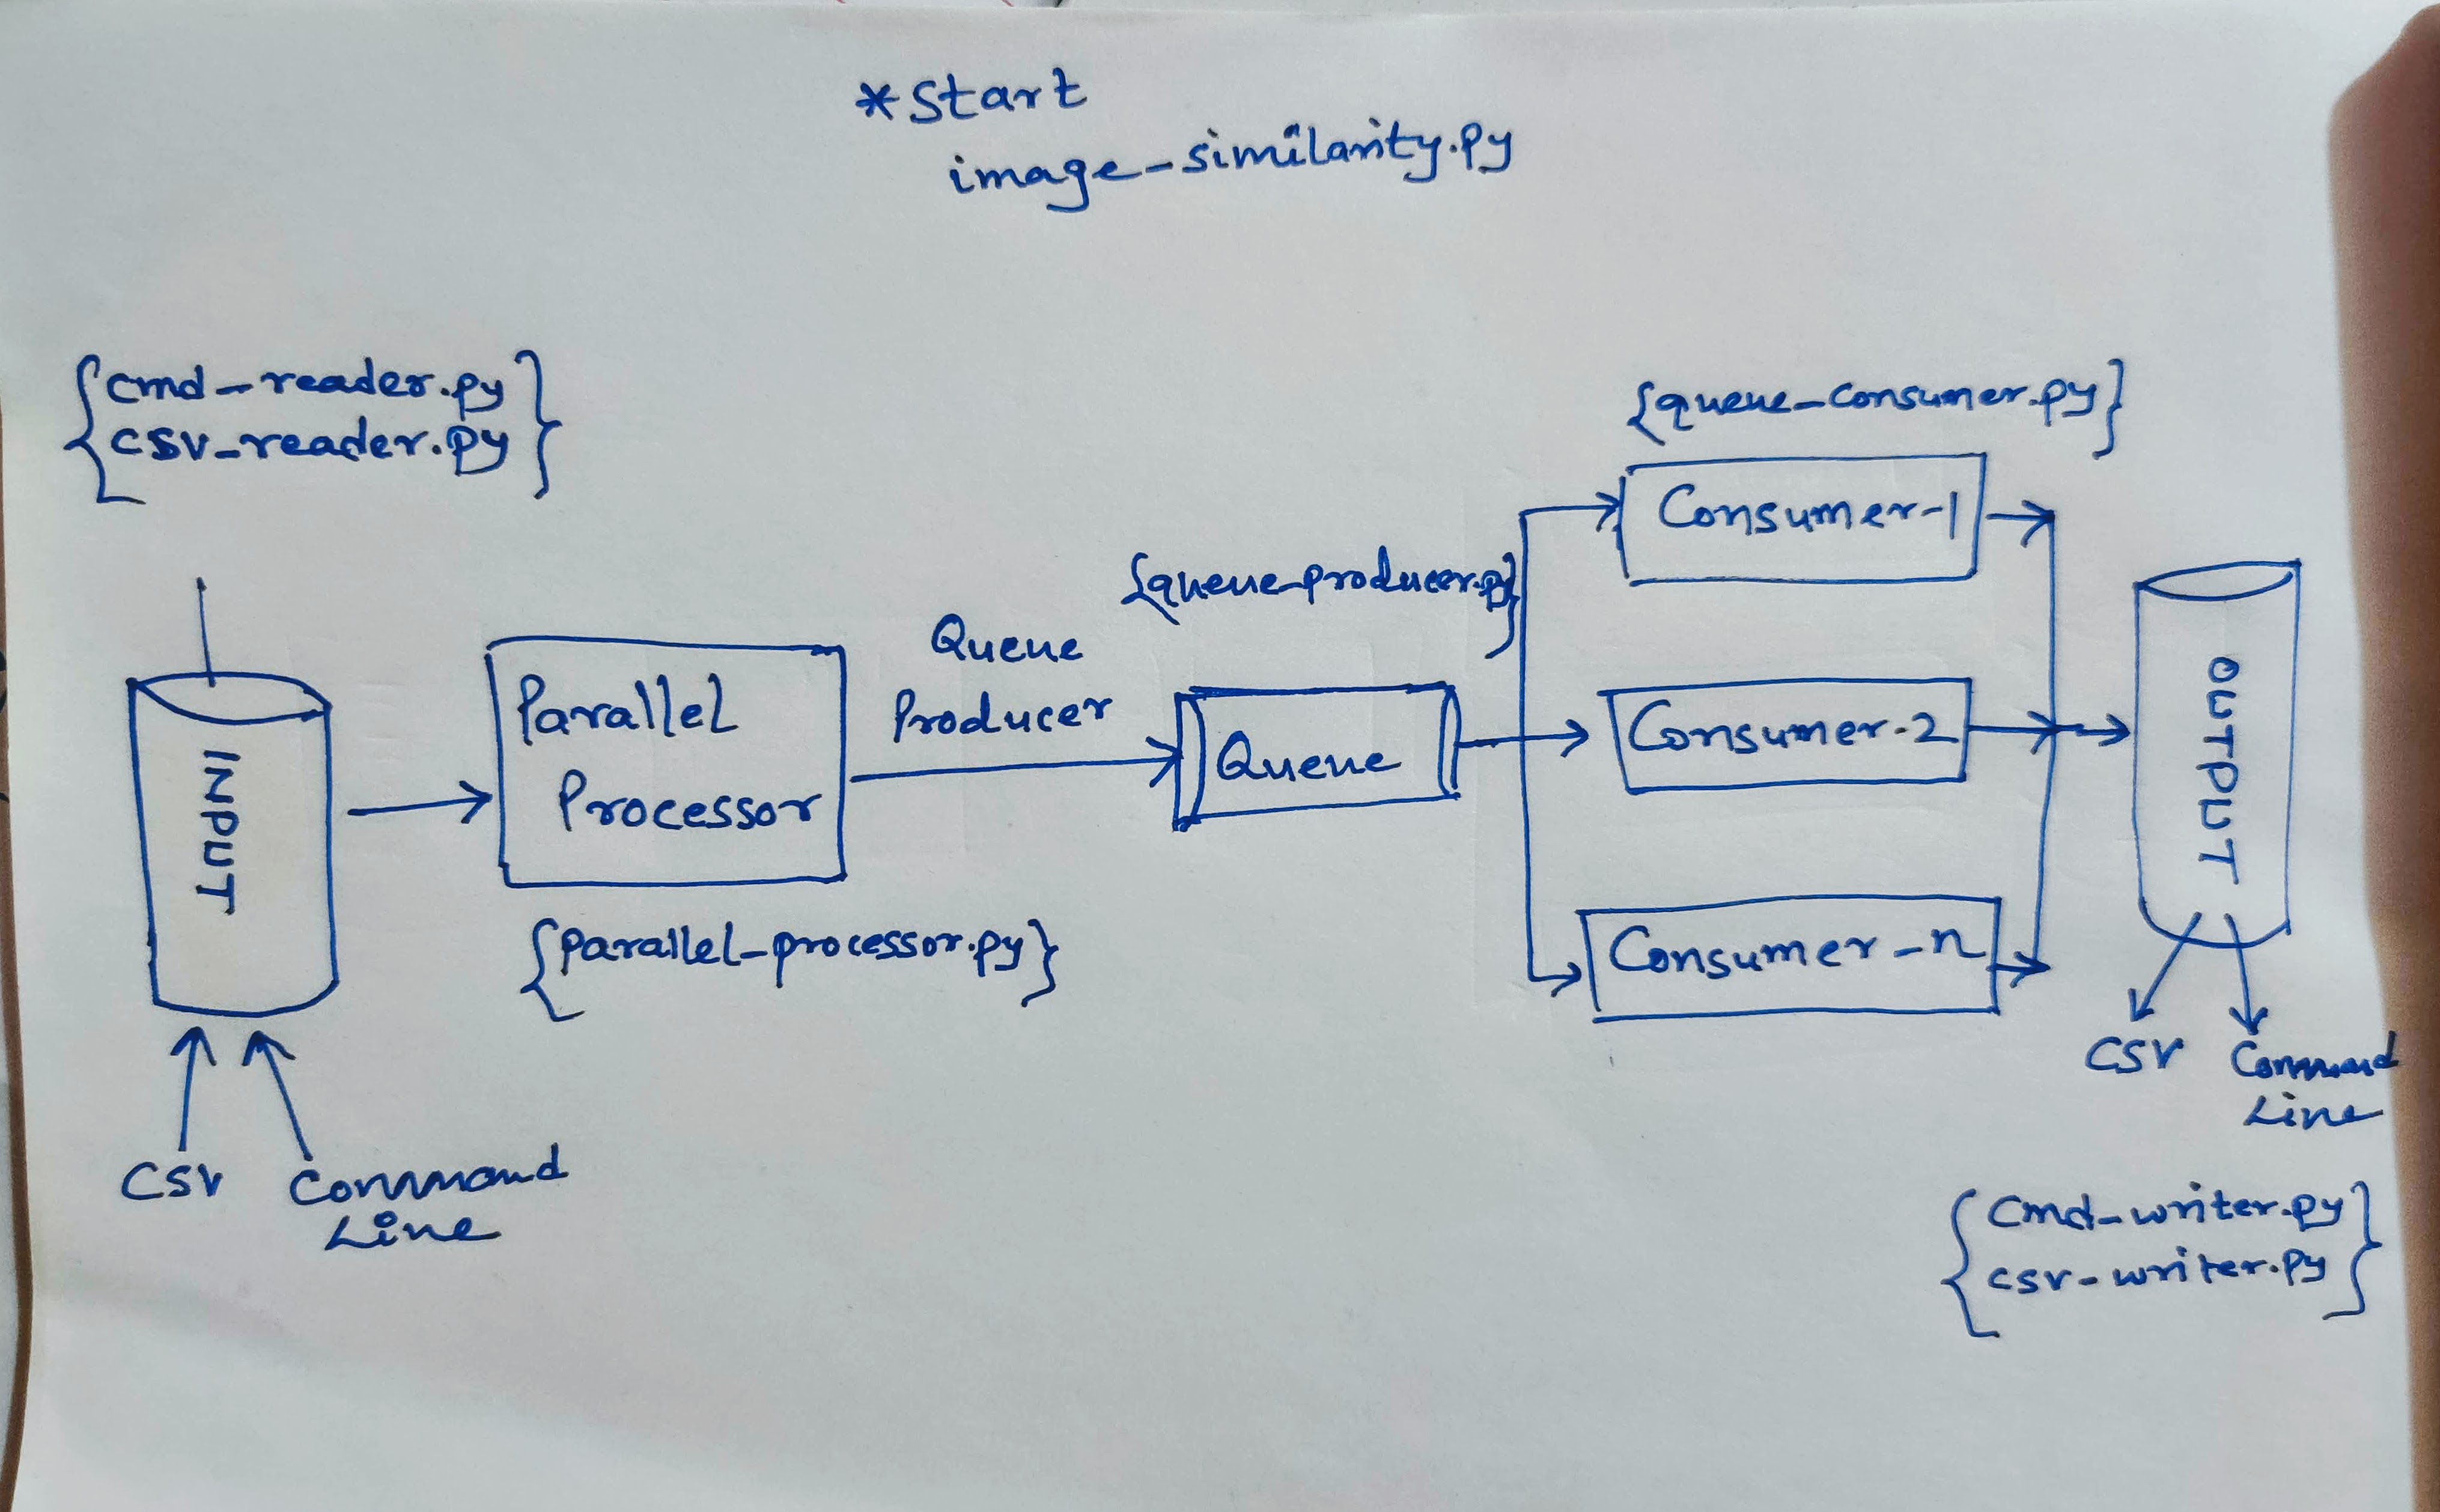 *Start
image-similarity.py
{cmd-reader.py}
{csv-reader.py}
INPUT
CSV
Command
Line
Parallel
Processor
{parallel-processor.py}
Queue
Producer
{queue-producer.py}
Queue
{queue-consumer.py}
Consumer-1
Consumer-2
Consumer-n
OUTPUT
CSV
Command
Line
{cmd-writer.py}
{csv-writer.py}